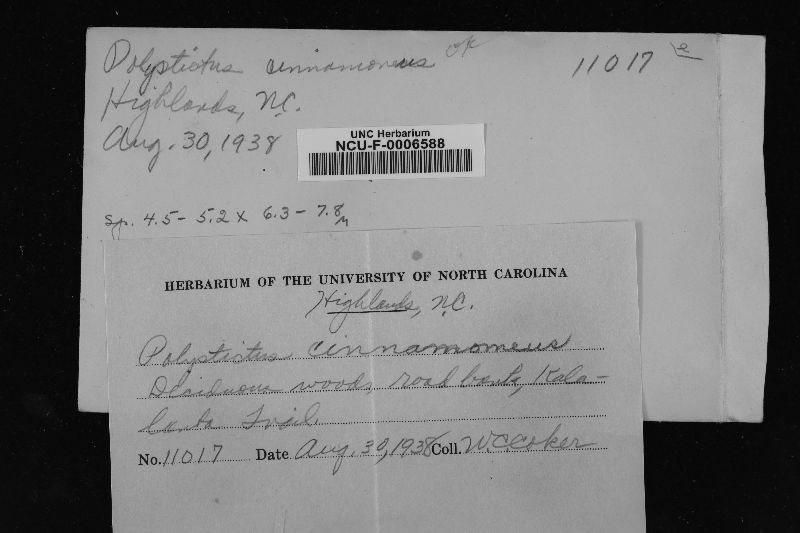 Polystictus cinnamoneus OK
11017 e
Highlands, N.C.
Aug. 30, 1938
UNC Herbarium
NCU-F-0006588
sp. 4.5 - 5.2 x 6.3 - 7.8 µ
HERBARIUM OF THE UNIVERSITY OF NORTH CAROLINA
Highlands, N.C.
Polystictus cinnamomeus
Deciduous woods, road bank, Kala-
lanta Trail.
No. 11017 Date Aug. 30, 1938 Coll. W.C. Coker